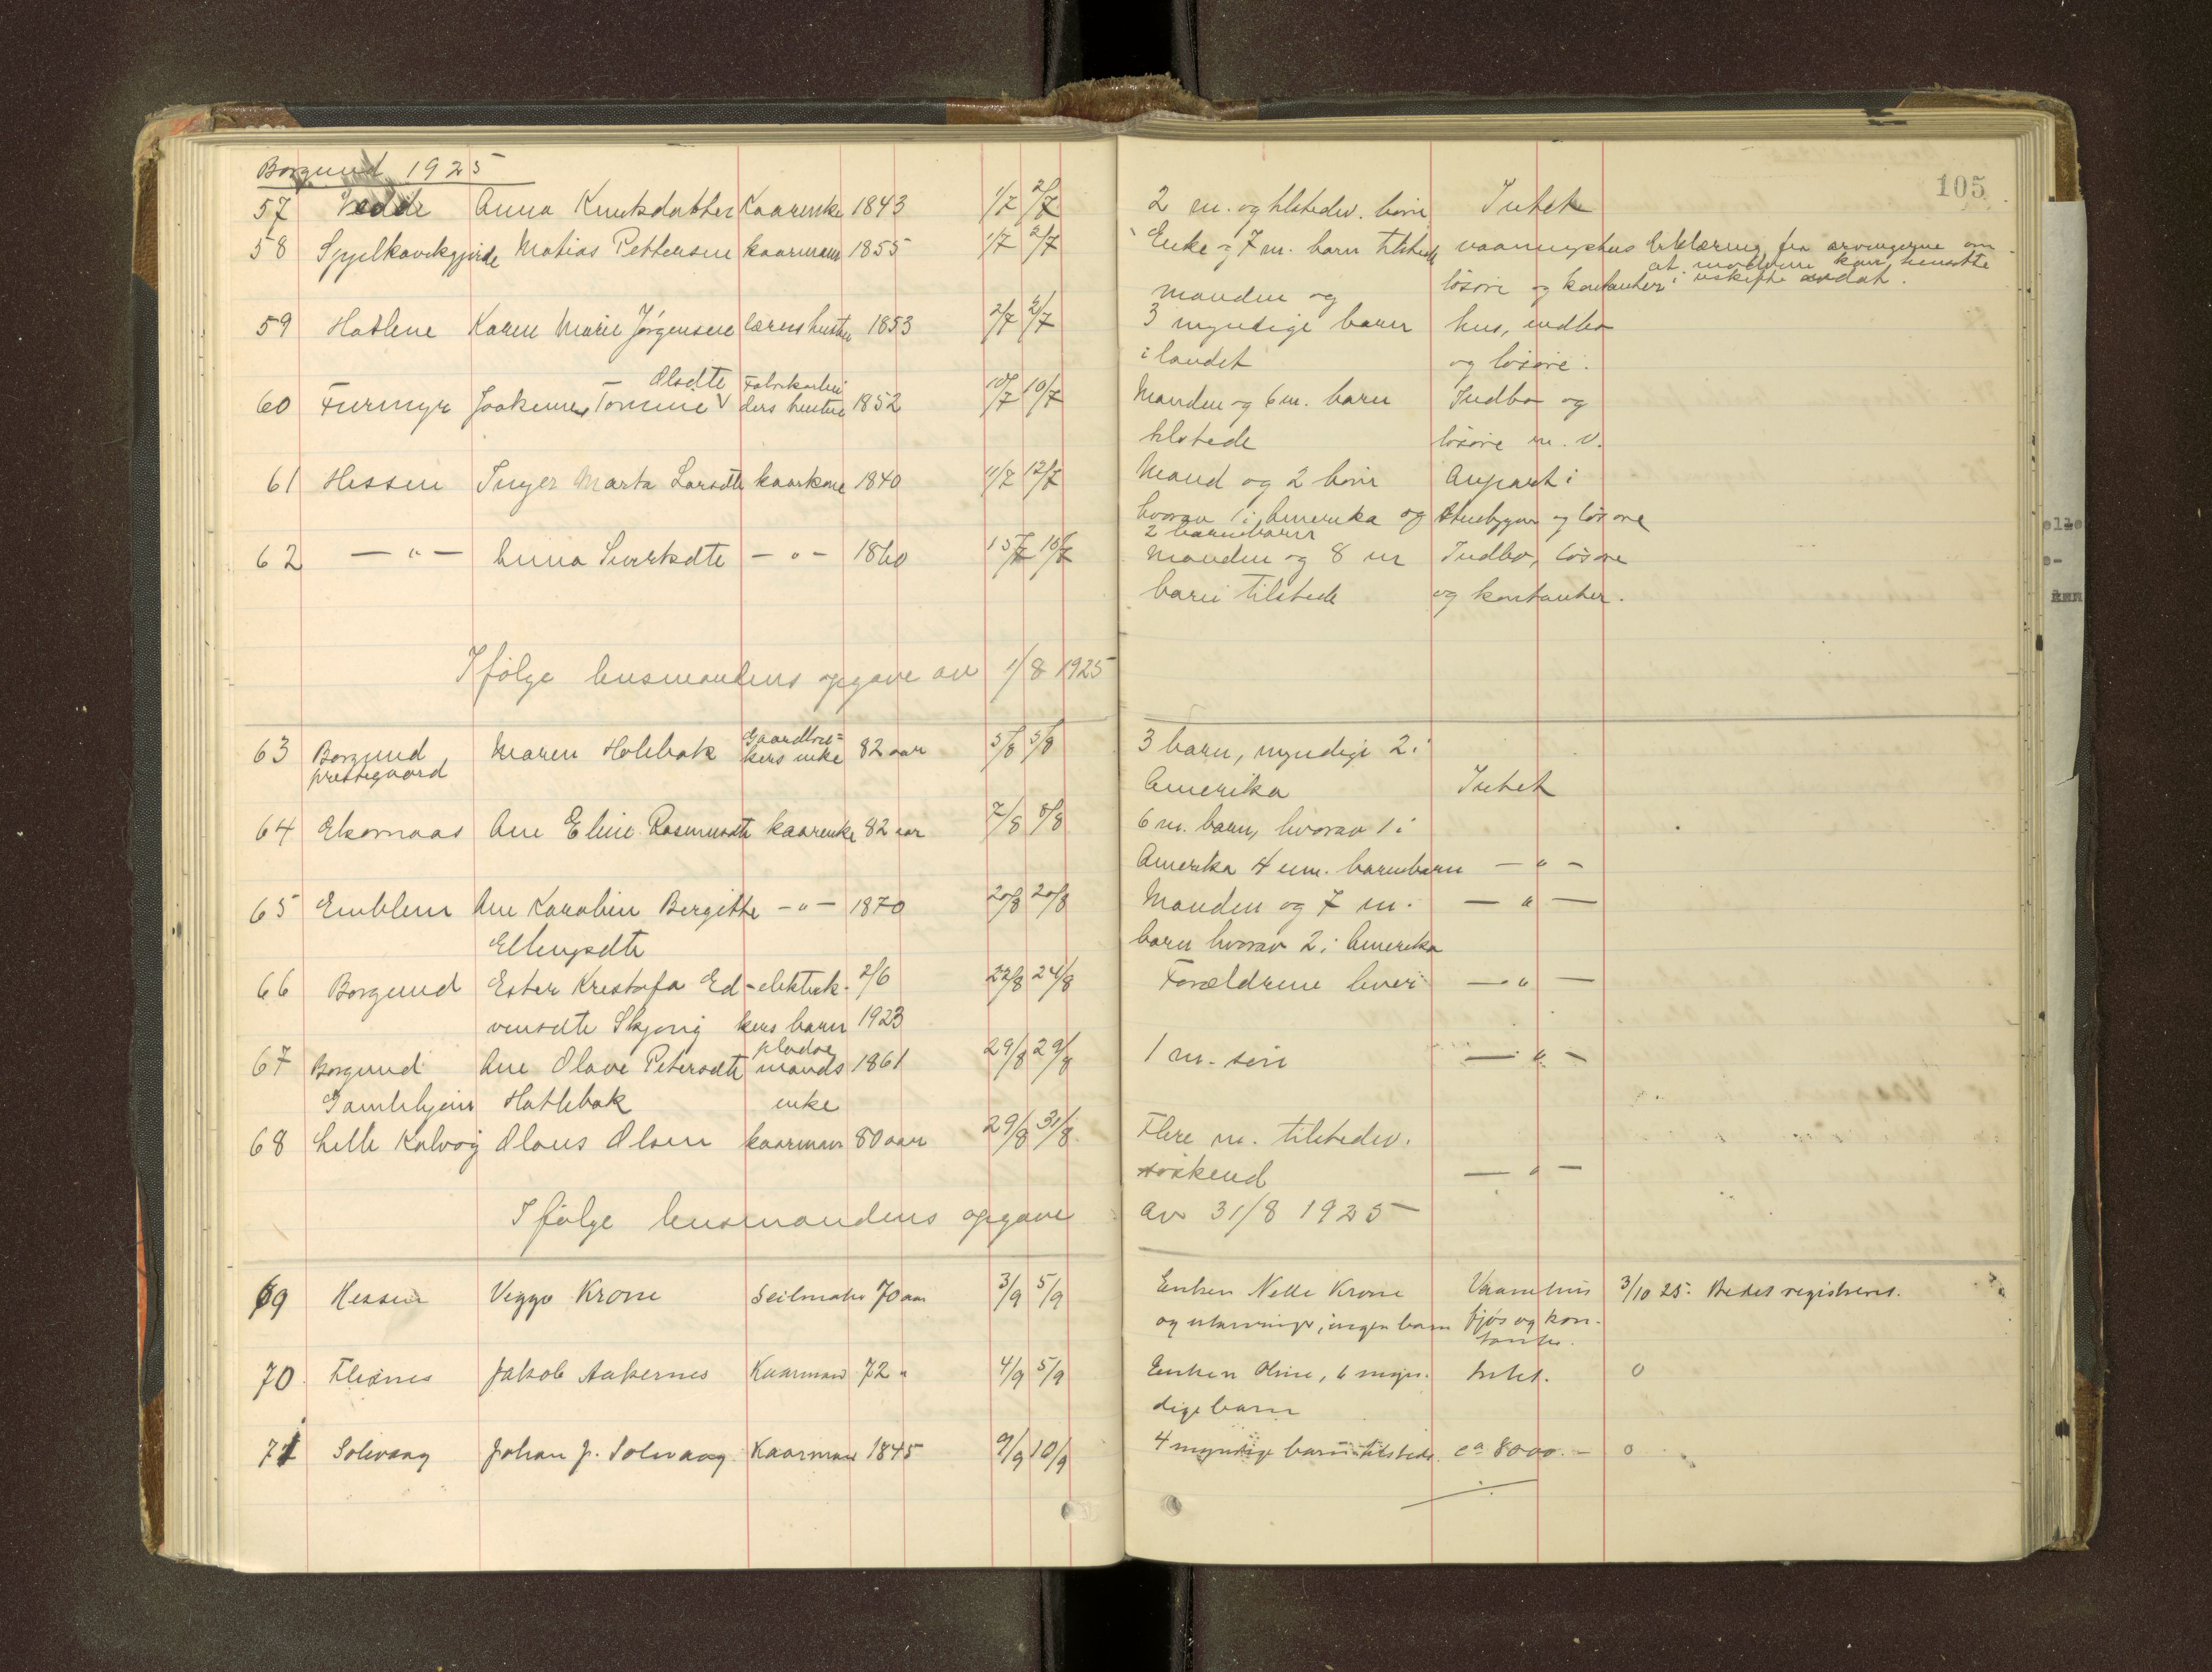 Borgund 1925
105
57 Vedde Anna Knutsdatter Kaarenke 1843 1/7 2/7 2 m. og tilstedev. børn Intet
58 Spjelkavikgjerde Matias Pettersen kaarmann 1855 1/7 2/7 Enke og 7 m. barn tilstede vaaningshus Erklæring fra arvingerne om
at moderen kan hensitte
løsøre og kontanter i uskifte avdat.
manden og
59 Hatlene Karen Marie Jørgensen lærers hustru 1853 2/7 6/7 3 myndige barn hus, indbo
i landet og løsøre.
Olsdte Fabrikarbei
60 Furmyr Joakime Tomine ders hustru 1852 10/7 10/7 Manden og 6 m. barn Indbo og
tilstede løsøre m. v.
61 Hessen Inger Marta Larsdte kaarkone 1840 11/7 12/7 Mand og 2 børn Anpart i
hvorav 1 i Amerika og løsøre
2 barnebarn
62 — " — Anna Sivertsdte - " - 1860 15/7 16/7 Manden og 8 m Indbo, løsøre
barn tilstede og kontanter.
Ifølge lensmandens opgave av 1/8 1925
63 Borgund Maren Holebak Gaardbru= 82 aar 5/8 5/8 3 barn, myndige 2 i
prestegaard kers enke
Amerika Intet
64 Ekornaas Ane Eline Rasmusdte kaarenke 82 aar 7/8 8/8 6 m. barn, hvorav 1 i
Amerika 4 um. barnebarn — " —
65 Emblem Ane Karoline Bergitte - " - 1870 20/8 20/8 Manden og 7 m. — " —
Ellingsdte barn hvorav 2 i Amerika
66 Borgund Ester Kristofa Ed- elektrik- 2/6 22/8 24/8 Forældrene lever — " —
vinsdte Skjong kers barn 1923
67 Borgund Ane Olave Petersdte mands 1861 29/8 29/8 1 m. søn — " —
Gamlehjem Hatlebak enke
68 Lille Kalvøy Olaus Olsen kaarmann 80 aar 29/8 31/8 Flere m. tilstedev.
søskend — " —
Ifølge lensmandens opgave av 31/8 1925
69 Hessen Viggo Krone Seilmaker 70 aar 3/9 5/9 Enken Nelle Krone Vaanhus 3/10 25. Bedes registreret.
og utarvinger, ingen barn fjøs og kon-
tanter.
70 Flisnes Jakob Aakernes Kaarmand 72 " 4/9 5/9 Enken Oline, 6 myn- Intet. 0
dige barn
71 Solevaag Johan J. Solevaag Kaarmand 1845 9/9 10/9 4 myndige barn tilstede. ca 8000.- 0